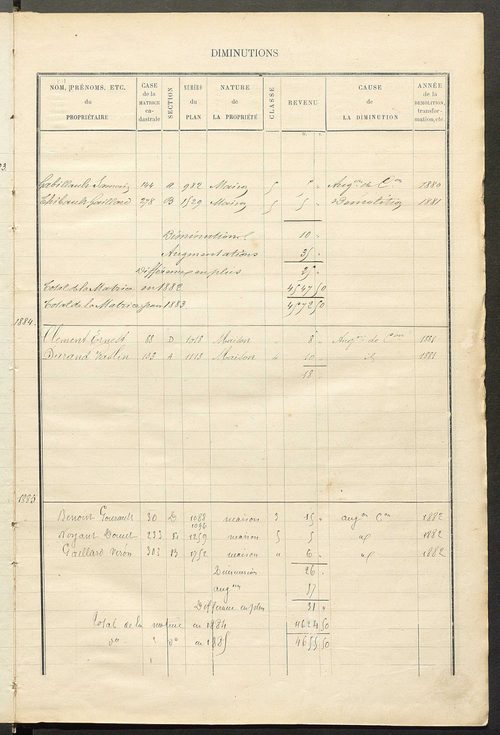 DIMINUTIONS
NOM, PRÉNOMS, ETC. du PROPRIÉTAIRE
CASE de la MATRICE cadastrale
SECTION
NUMÉRO du PLAN
NATURE de LA PROPRIÉTÉ
CLASSE
REVENU
CAUSE de LA DIMINUTION
ANNÉE de la DÉMOLITION, transformation, etc.
144 A 982 Maison 5 1880
278 B 1529 Maison 5 5 Démolition 1881
Diminutions 10
Augmentations 35
Différence en plus 25
Total de la Matrice en 1882 4547 50
Total de la Matrice pour 1883 4572 50
1884.
Clement Ernest 88 D Maison 8 1881
Durand 103 A 1113 Maison 10 1881
18
1885
Benoist 30 D 1088 maison 3 15 augon Con 1882
1096
233 1259 maison 5 5 d° 1882
Gaillard Veron 303 B 1752 maison 6 d° 1882
Diminution 26
augon 57
Différence en plus 31
Total de la matrice en 1884 4624 50
d° d° en 1885 4655 50